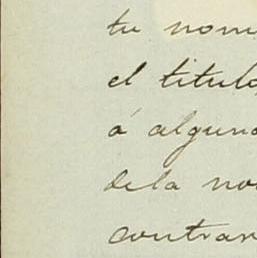 tu nom
el titulo
á alguna
dela no
contrar